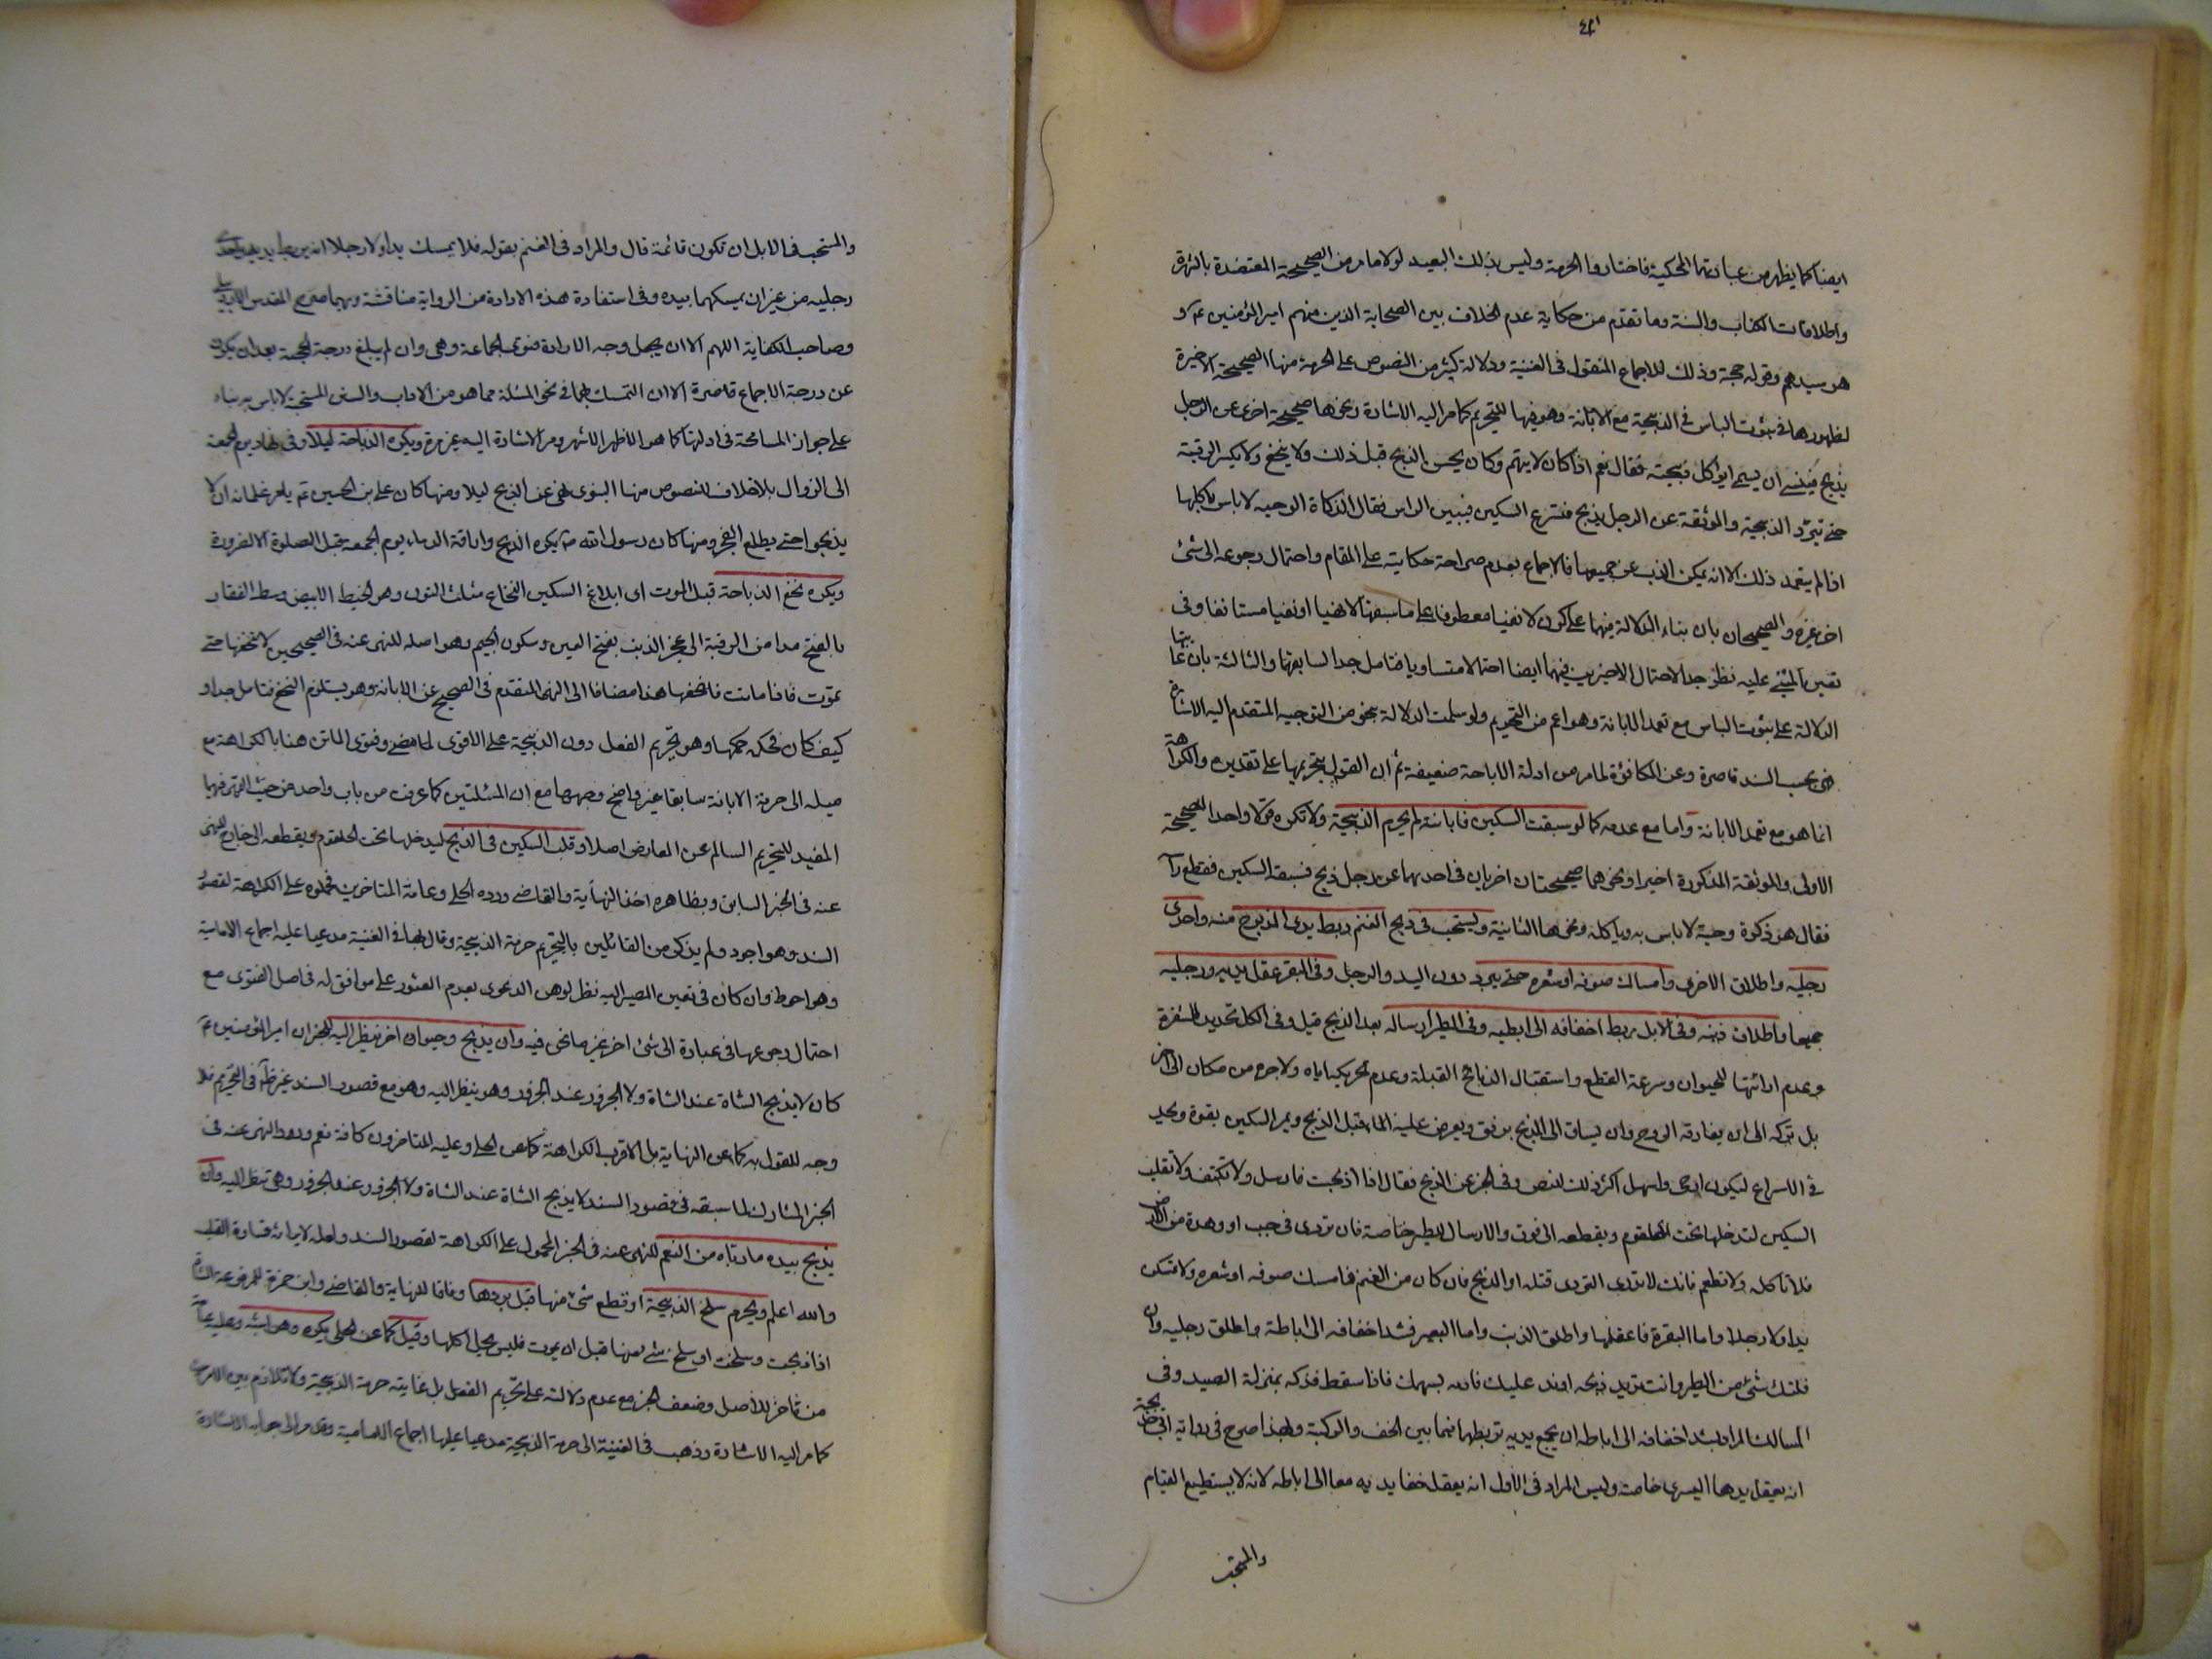 ٤٢١
ايضا كما يظهر من عبارتهما المحكية فاختاروا الحرمة وليس بذلك البعيد لولا ما مر من الصحيحة المعتضدة بالشهرة
واطلاقات الكتاب والسنة وما تقدم من حكاية عدم الخلاف بين الصحابة الذين منهم امير المؤمنين ع و
هو سيدهم وقوله حجة وذلك للاجماع المنقول في الغنية ودلالة كثير من النصوص على الحرمة منها الصحيحة الاخيرة
لظهورها في ثبوت الباس في الذبيحة مع الابانة وهو فيها للتحريم كما مر اليه الاشارة ونحوها صحيحة اخرى عن الرجل
يذبح فينسى ان يسمى ايؤكل ذبيحته فقال نعم اذا كان لا يتهم وكان يحسن الذبح قبل ذلك ولا ينخع ولا يكسر الرقبة
حتى تبرد الذبيحة والموثقة عن الرجل يذبح فتسرع السكين فتبين الراس فقال الذكاة الوحيه لا باس باكلها
اذا لم يتعمد ذلك الا انه يمكن الذب عن جميعها فالاجماع بعدم صراحة حكايته على المقام واحتمال رجوعه الى شئ
اخر غيره والصحيحان بان بناء الدلالة فيهما على كون لا نفيا معطوفا على ما سبقها لا نهيا او نفيا مستانفا وفى
تعين المبنى عليه نظر جدا لاحتمال الاخيرين فيهما ايضا احتمالا متساويا فتامل جدا لسابقهما والثالثة بان غايتها
الدلالة على ثبوت الباس مع تعمد الابانة وهو اعم من التحريم ولو سلمت الدلالة بنحو من التوجيه المتقدم اليه الاشارة
فهى بحسب السند قاصرة وعن المكافؤة لما مر من ادلة الاباحة ضعيفة ثم ان القول بتحريمها على تقديره والكراهة
انما هو مع تعمد الابانة واما مع عدمه كما لو سبقت السكين فابانته لم يحرم الذبيحة ولا تكره قولا واحدا للصحيحة
الاولى والموثقة المذكورة اخيرا ونحوهما صحيحتان اخريان في احدهما عن رجل ذبح فسبقه السكين فقطع راسه
فقال هو ذكوة وحية لا باس به وباكله ونحوها الثانية ويستحب في ذبح الغنم ربط يدى المذبوح منه واحدى
رجليه واطلاق الاخرى وامساك صوفه او شعره حتى يبرد دون اليد والرجل وفى البقر عقل يديه ورجليه
جميعا واطلاق ذنبه وفى الابل ربط اخفافه الى ابطيه وفى الطير ارساله بعد الذبح قيل وفى الكل تحديد الشفرة
وعدم ارائتها للحيوان وسرعة القطع واستقبال الذابح القبلة وعدم تحريكه اياه ولا جره من مكان الى اخر
بل تركه الى ان يفارقه الروح وان يساق الى الذبح برفق ويعرض عليه الماء قبل الذبح ويمر السكين بقوة ويجد
في الاسراع ليكون اوحى واسهل اكثر ذلك للنص وفى الخبر عن الذبح فقال اذا ذبحت فارسل ولا تكتف ولا تقلب
السكين لتدخلها تحت الحلقوم وتقطعه الى فوق والارسال للطير خاصة فان تردى في جب او وهدة من الارض
فلا تاكله ولا تطعم فانك لا تدرى التردى قتله او الذبح فان كان من الغنم فامسك صوفه او شعره ولا تمسكن
يدا ولا رجلا واما البقرة فاعقلها واطلق الذنب واما البعير فشد اخفافه الى اباطه واطلق رجليه وان
فلتك شئ من الطير وانت تريد ذبحه او ند عليك فارمه بسهمك فاذا سقط فذكه بمنزلة الصيد وفى
المسالك المراد بشد اخفافه الى اباطه ان يجمع يديه ثم يربطها فيما بين الخف والركبة وبهذا صرح في رواية ابى خديجة
انه يعقل يدها اليسرى خاصة وليس المراد في الاول انه يعقل خفا يديه معا الى اباطه لانه لا يستطيع القيام
والمستحب
والمستحب في الابل ان تكون قائمة قال والمراد في الغنم بقوله فلا يمسك يدا ولا رجلا انه يربط يديه واحدى
رجليه من غير ان يمسكهما بيده وفى استفادة هذه الارادة من الرواية مناقشة وبهما صرح المقدس الاردبيلى
وصاحب الكفاية اللهم الا ان يجعل وجه الارادة فتوى الجماعة وهى وان لم يبلغ درجة الحجية بعد ان يكون
عن درجة الاجماع قاصرة الا ان التمسك بها في نحو المسئلة مما هو من الاداب والسنن المستحبة لا باس به بناء
على جواز المسامحة في ادلتها كما هو الاظهر الاشهر ومر الاشارة اليه غير مرة ويكره الذباحة ليلا وفى نهار يوم الجمعة
الى الزوال بلا خلاف للنصوص منها النبوى نهى عن الذبح ليلا ومنها كان على بن الحسين ع يامر غلمانه ان لا
يذبحوا حتى يطلع الفجر ومنها كان رسول الله ص يكره الذبح واراقة الدماء يوم الجمعة قبل الصلوة الا لضرورة
ويكره نخع الذباحة قبل الموت اى ابلاغ السكين النخاع مثلث النون وهو الخيط الابيض وسط الفقار
بالفتح مدا من الرقبة الى عجز الذنب بفتح العين وسكون الجيم وهو اصله للنهى عنه في الصحيحين لا تنخعها حتى
تموت فاذا ماتت فانخعها هذا مضافا الى النهى المتقدم في الصحيح عن الابانة وهو يستلزم النخع فتامل جدا و
كيف كان فحكمه حكمها وهو تحريم الفعل دون الذبيحة على الاقوى لما مضى وفتوى الماتن هنا بالكراهة مع
ميله الى حرمة الابانة سابقا غير واضح وجهها مع ان المسئلتين كما عرفت من باب واحد من حيث النهى فيهما
المفيد للتحريم السالم عن المعارض اصلا وقلب السكين في الذبح ليدخلها تحت الحلقوم ويقطعه الى خارج للنهى
عنه في الخبر السابق وبظاهره اخذ النهاية والقاضى ورده الحلى وعامة المتاخرين فحملوه على الكراهة لقصور
السند وهو اجود ولم يذكر من القائلين بالتحريم حرمة الذبيحة وقال بها في الغنية مدعيا عليه اجماع الامامية
وهو احوط وان كان في تعين المصير اليه نظر لوهن الدعوى بعدم العثور على موافق له في اصل الفتوى مع
احتمال رجوعها في عبارة الى شئ اخر غير ما نحن فيه وان يذبح وحيوان اخر ينظر اليه للخبر ان امير المؤمنين ع
كان لا يذبح الشاة عند الشاة ولا الجزور عند الجزور وهو ينظر اليه وهو مع قصور السند غير ظاهر في التحريم فلا
وجه للقول به كما عن النهاية بل الاقرب الكراهة كما عن الحلى وعليه المتاخرون كافة نعم ورد النهى عنه في
الخبر المشارك لما سبقه في قصور السند لا يذبح الشاة عند الشاة ولا الجزور عند الجزور وهى تنظر اليه وان
يذبح بيده ما رباه من النعم للنهى عنه في الخبر المحمول على الكراهة لقصور السند ولعله لايراثه قساوة القلب
والله اعلم ويحرم سلخ الذبيحة او قطع شئ منها قبل بردها وفاقا للنهاية والقاضى وابن حمزة للمرفوعة الشاة
اذا ذبحت وسلخت او سلخ شئ منها قبل ان يموت فليس يحل اكلها وقيل كما عن الحلى يكره وهو اشبه وعليه عامة
من تاخر للاصل وضعف الخبر مع عدم دلالته على تحريم الفعل بل غايته حرمة الذبيحة ولا تلازم بين الامرين
كما مر اليه الاشارة وذهب في الغنية الى حرمة الذبيحة مدعيا عليها اجماع الامامية وقد مر الى جوابه الاشارة